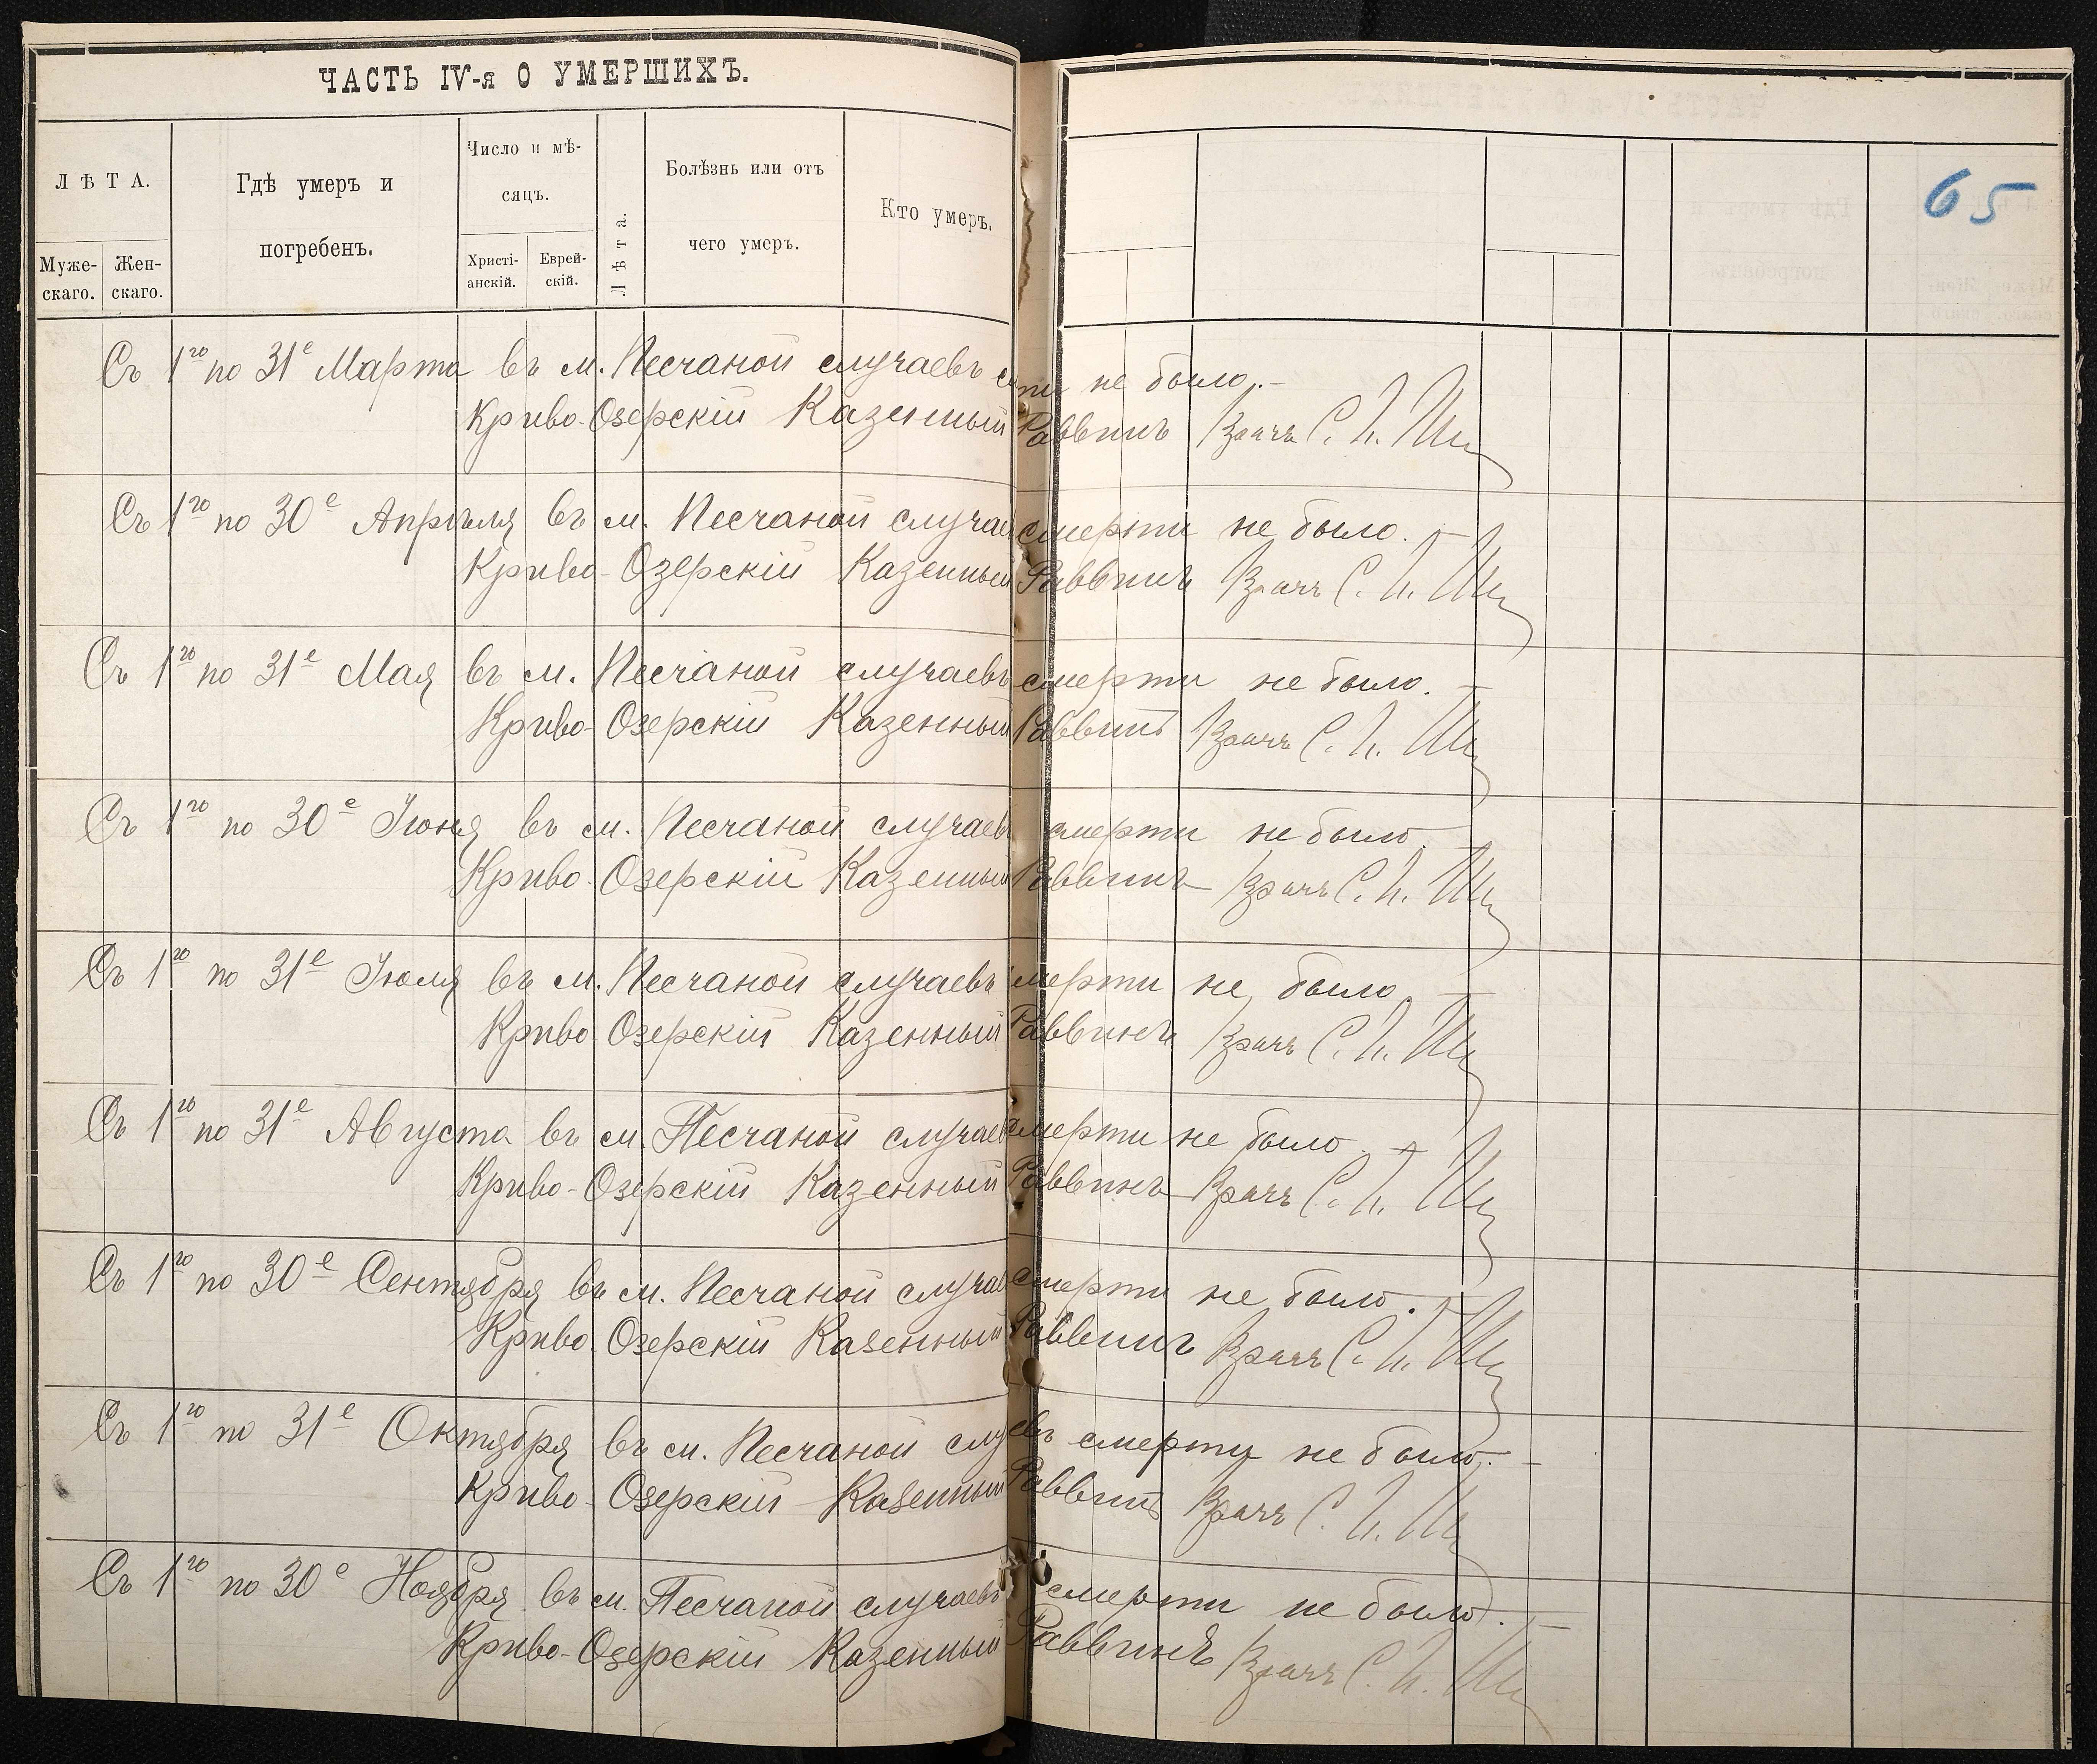 ЧАСТЬ IV-я О УМЕРШИХЪ.
65
ЛѢТА.
Муже-
скаго.
Жен-
скаго.
Гдѣ умеръ и
погребенъ.
Число и мѣ-
сяцъ.
Христі-
анскій.
Еврей-
скій.
Лѣта.
Болѣзнь или отъ
чего умеръ.
Кто умеръ.
Съ 1го по 31е Марта въ м. Песчаной случаевъ с ти не было.-
Криво-Озерскій Казенный Раввинъ Врачъ С.
Съ 1го по 30е Апрѣля въ м. Песчаной случа смерти не было. -
Криво-Озерскій Казенный Раввинъ Врачъ С.
Съ 1го по 31е Мая въ м. Песчаной случаевъ смерти не было. -
Криво-Озерскій Казенный Раввинъ Врачъ С.
Съ 1го по 30е Іюня въ м. Песчаной случаев смерти не было. -
Криво-Озерскій Казенный Раввинъ Врачъ С.
Съ 1го по 31е Іюля въ м. Песчаной случаевъ смерти не было. -
Криво Озерскій Казенный Раввинъ Врачъ С.
Съ 1го по 31е Августа въ м. Песчаной случаев смерти не было. -
Криво-Озерскій Казенный Раввинъ Врачъ С.
Съ 1го по 30е Сентября въ м. Песчаной случае смерти не было. -
Криво-Озерскій Казенный Раввинъ Врачъ С.
Съ 1го по 31е Октября въ м. Песчаной слу евъ смерти не было. -
Криво-Озерскій Казенный Раввинъ Врачъ С.
Съ 1го по 30е Ноября въ м. Песчаной случаевъ смерти не было. -
Криво-Озерскій Казенный Раввинъ Врачъ С.